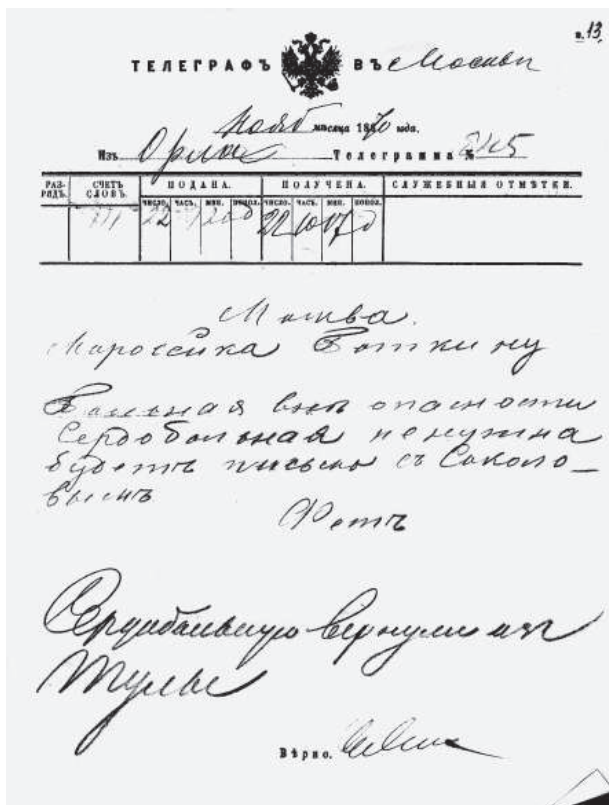 в. 13.
ТЕЛЕГРАФЪ ВЪ Москвѣ
Нояб мѣсяца 1870 года.
Изъ Орла Телеграмма №
РАЗ- РЯДЪ. СЧЕТЪ СЛОВЪ. ПОДАНА. ПОЛУЧЕНА. СЛУЖЕБНЫЯ ОТМѢТКИ.
ЧИСЛО. ЧАСЪ. МИН. ПОПОЛ. ЧИСЛО. ЧАСЪ. МИН. ПОПОЛ.
22 22 10
Москва.
Маросейка Боткину
Больная внѣ опасности
Сердобольная ненужна
будетъ письмо съ Соколо-
вымъ
Фетъ
Сердобольную вернули изъ
Тулы
Вѣрно.